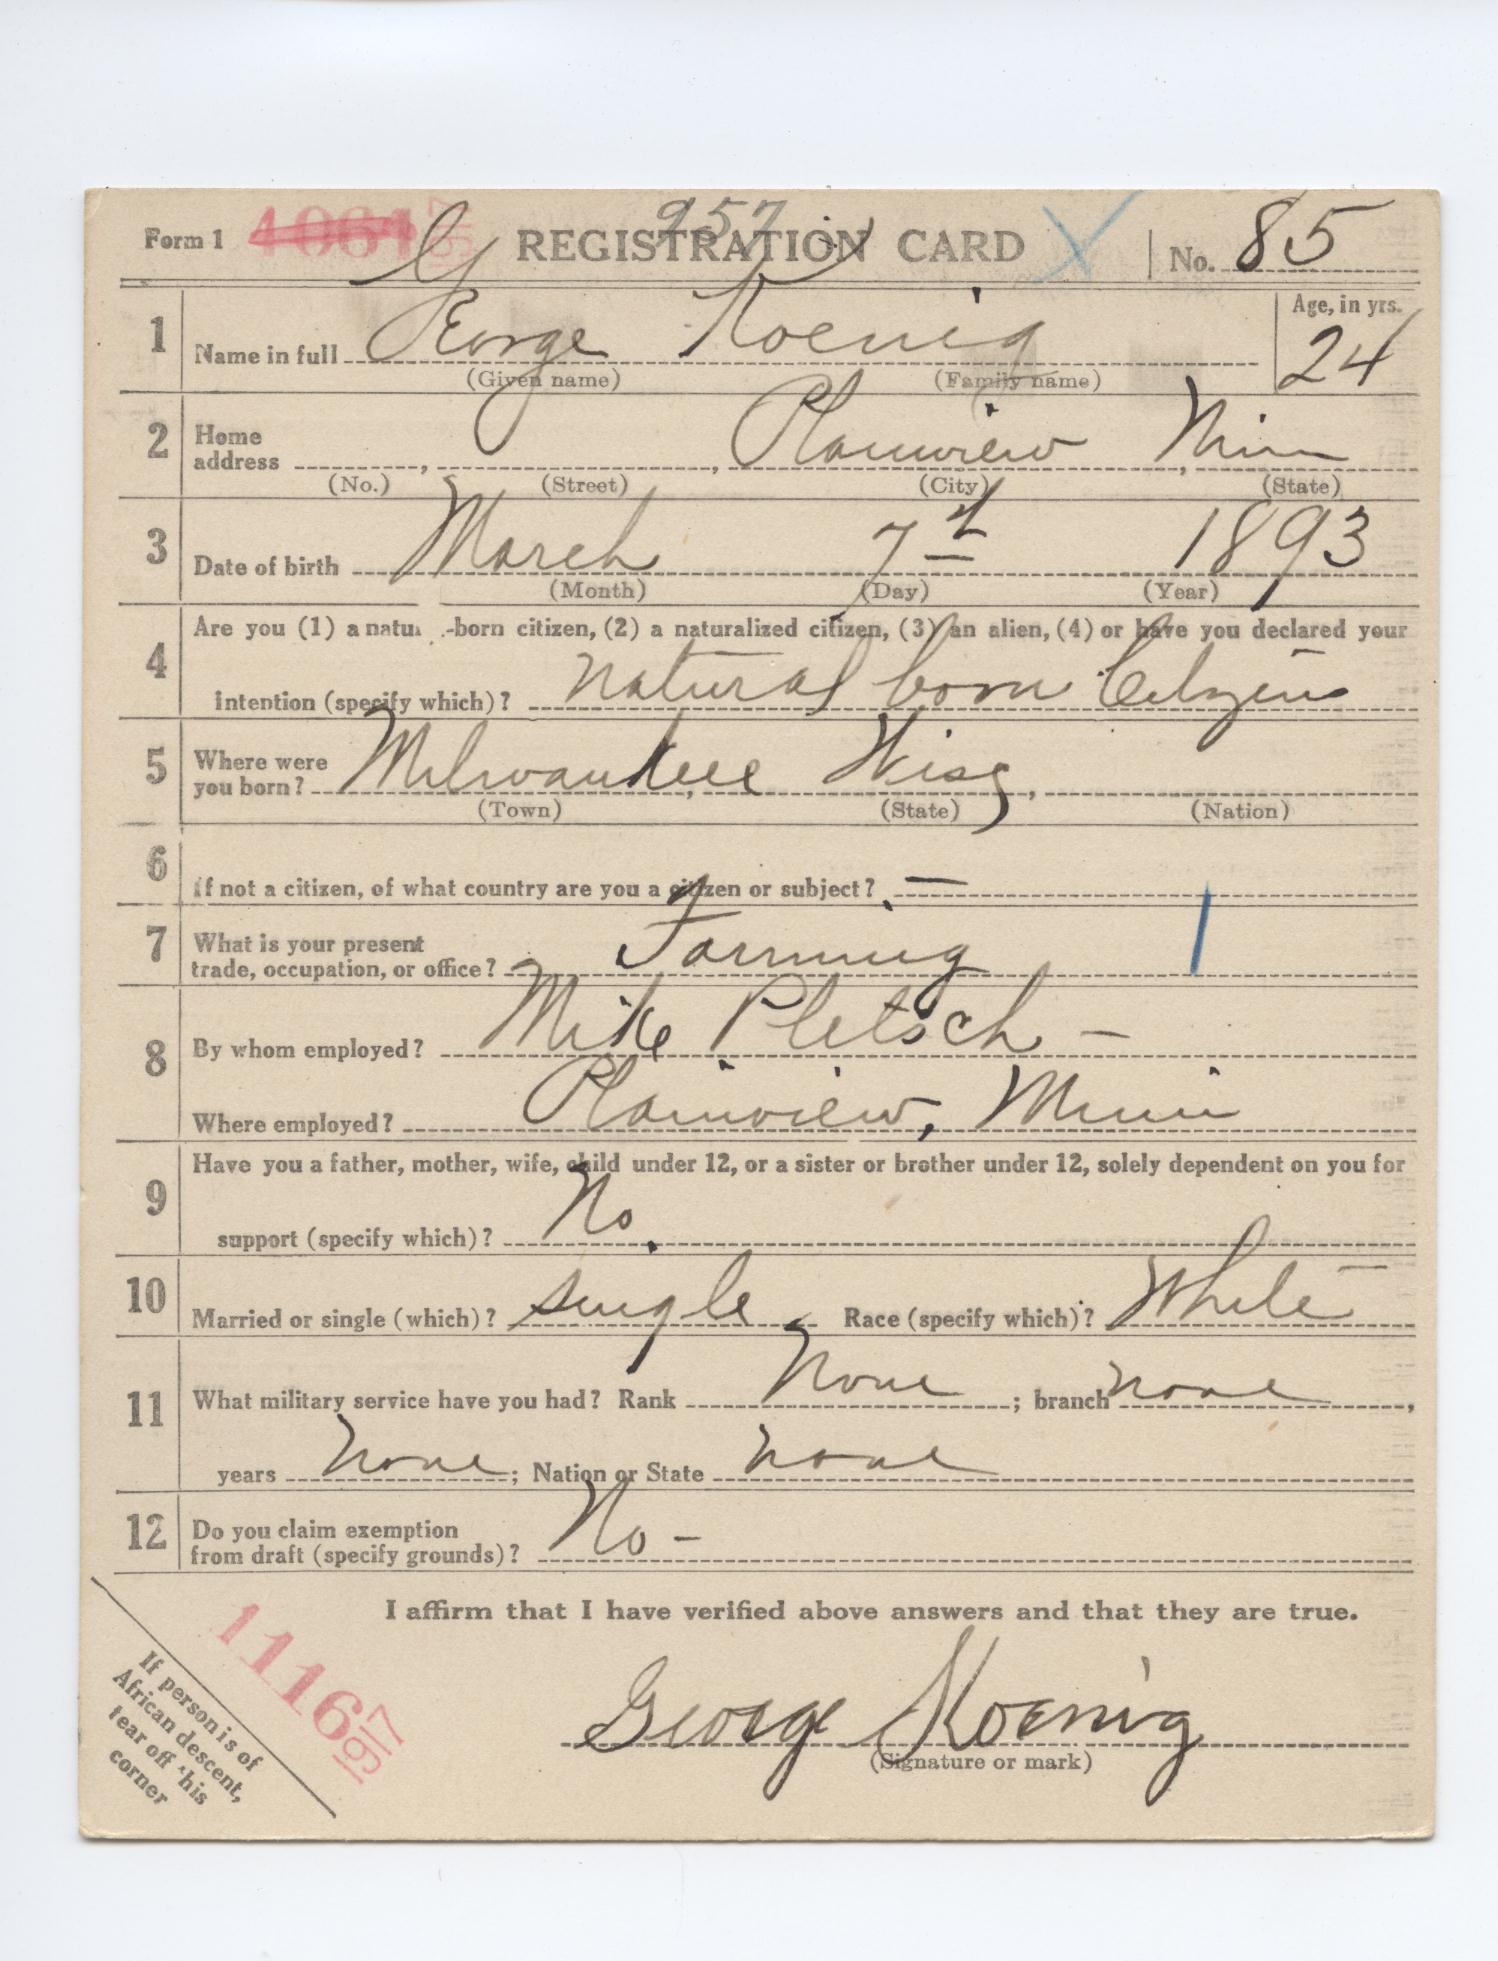 Form 1 957 REGISTRATION CARD X No. 85
1 Name in full George Koenig Age, in yrs. 24
(Given name) (Family name)
2 Home address Plainview Minn
(No.) (Street) (City) (State)
3 Date of birth March 7th 1893
(Month) (Day) (Year)
4 Are you (1) a natu -born citizen, (2) a naturalized citizen, (3) an alien, (4) or have you declared your
intention (specify which)? natural born Citizen
5 Where were you born? Milwaukee Wisc
(Town) (State) (Nation)
6 If not a citizen, of what country are you a citizen or subject? —
7 What is your present trade, occupation, or office? Farming 1
8 By whom employed? Mike Pletsch –
Where employed? Plainview, Minn
9 Have you a father, mother, wife, child under 12, or a sister or brother under 12, solely dependent on you for
support (specify which)? No.
10 Married or single (which)? single Race (specify which)? White
11 What military service have you had? Rank None ; branch none,
years None; Nation or State none
12 Do you claim exemption from draft (specify grounds)? No –
I affirm that I have verified above answers and that they are true.
George Koenig
(Signature or mark)
If person is of
African descent,
tear off this
corner
1116 97